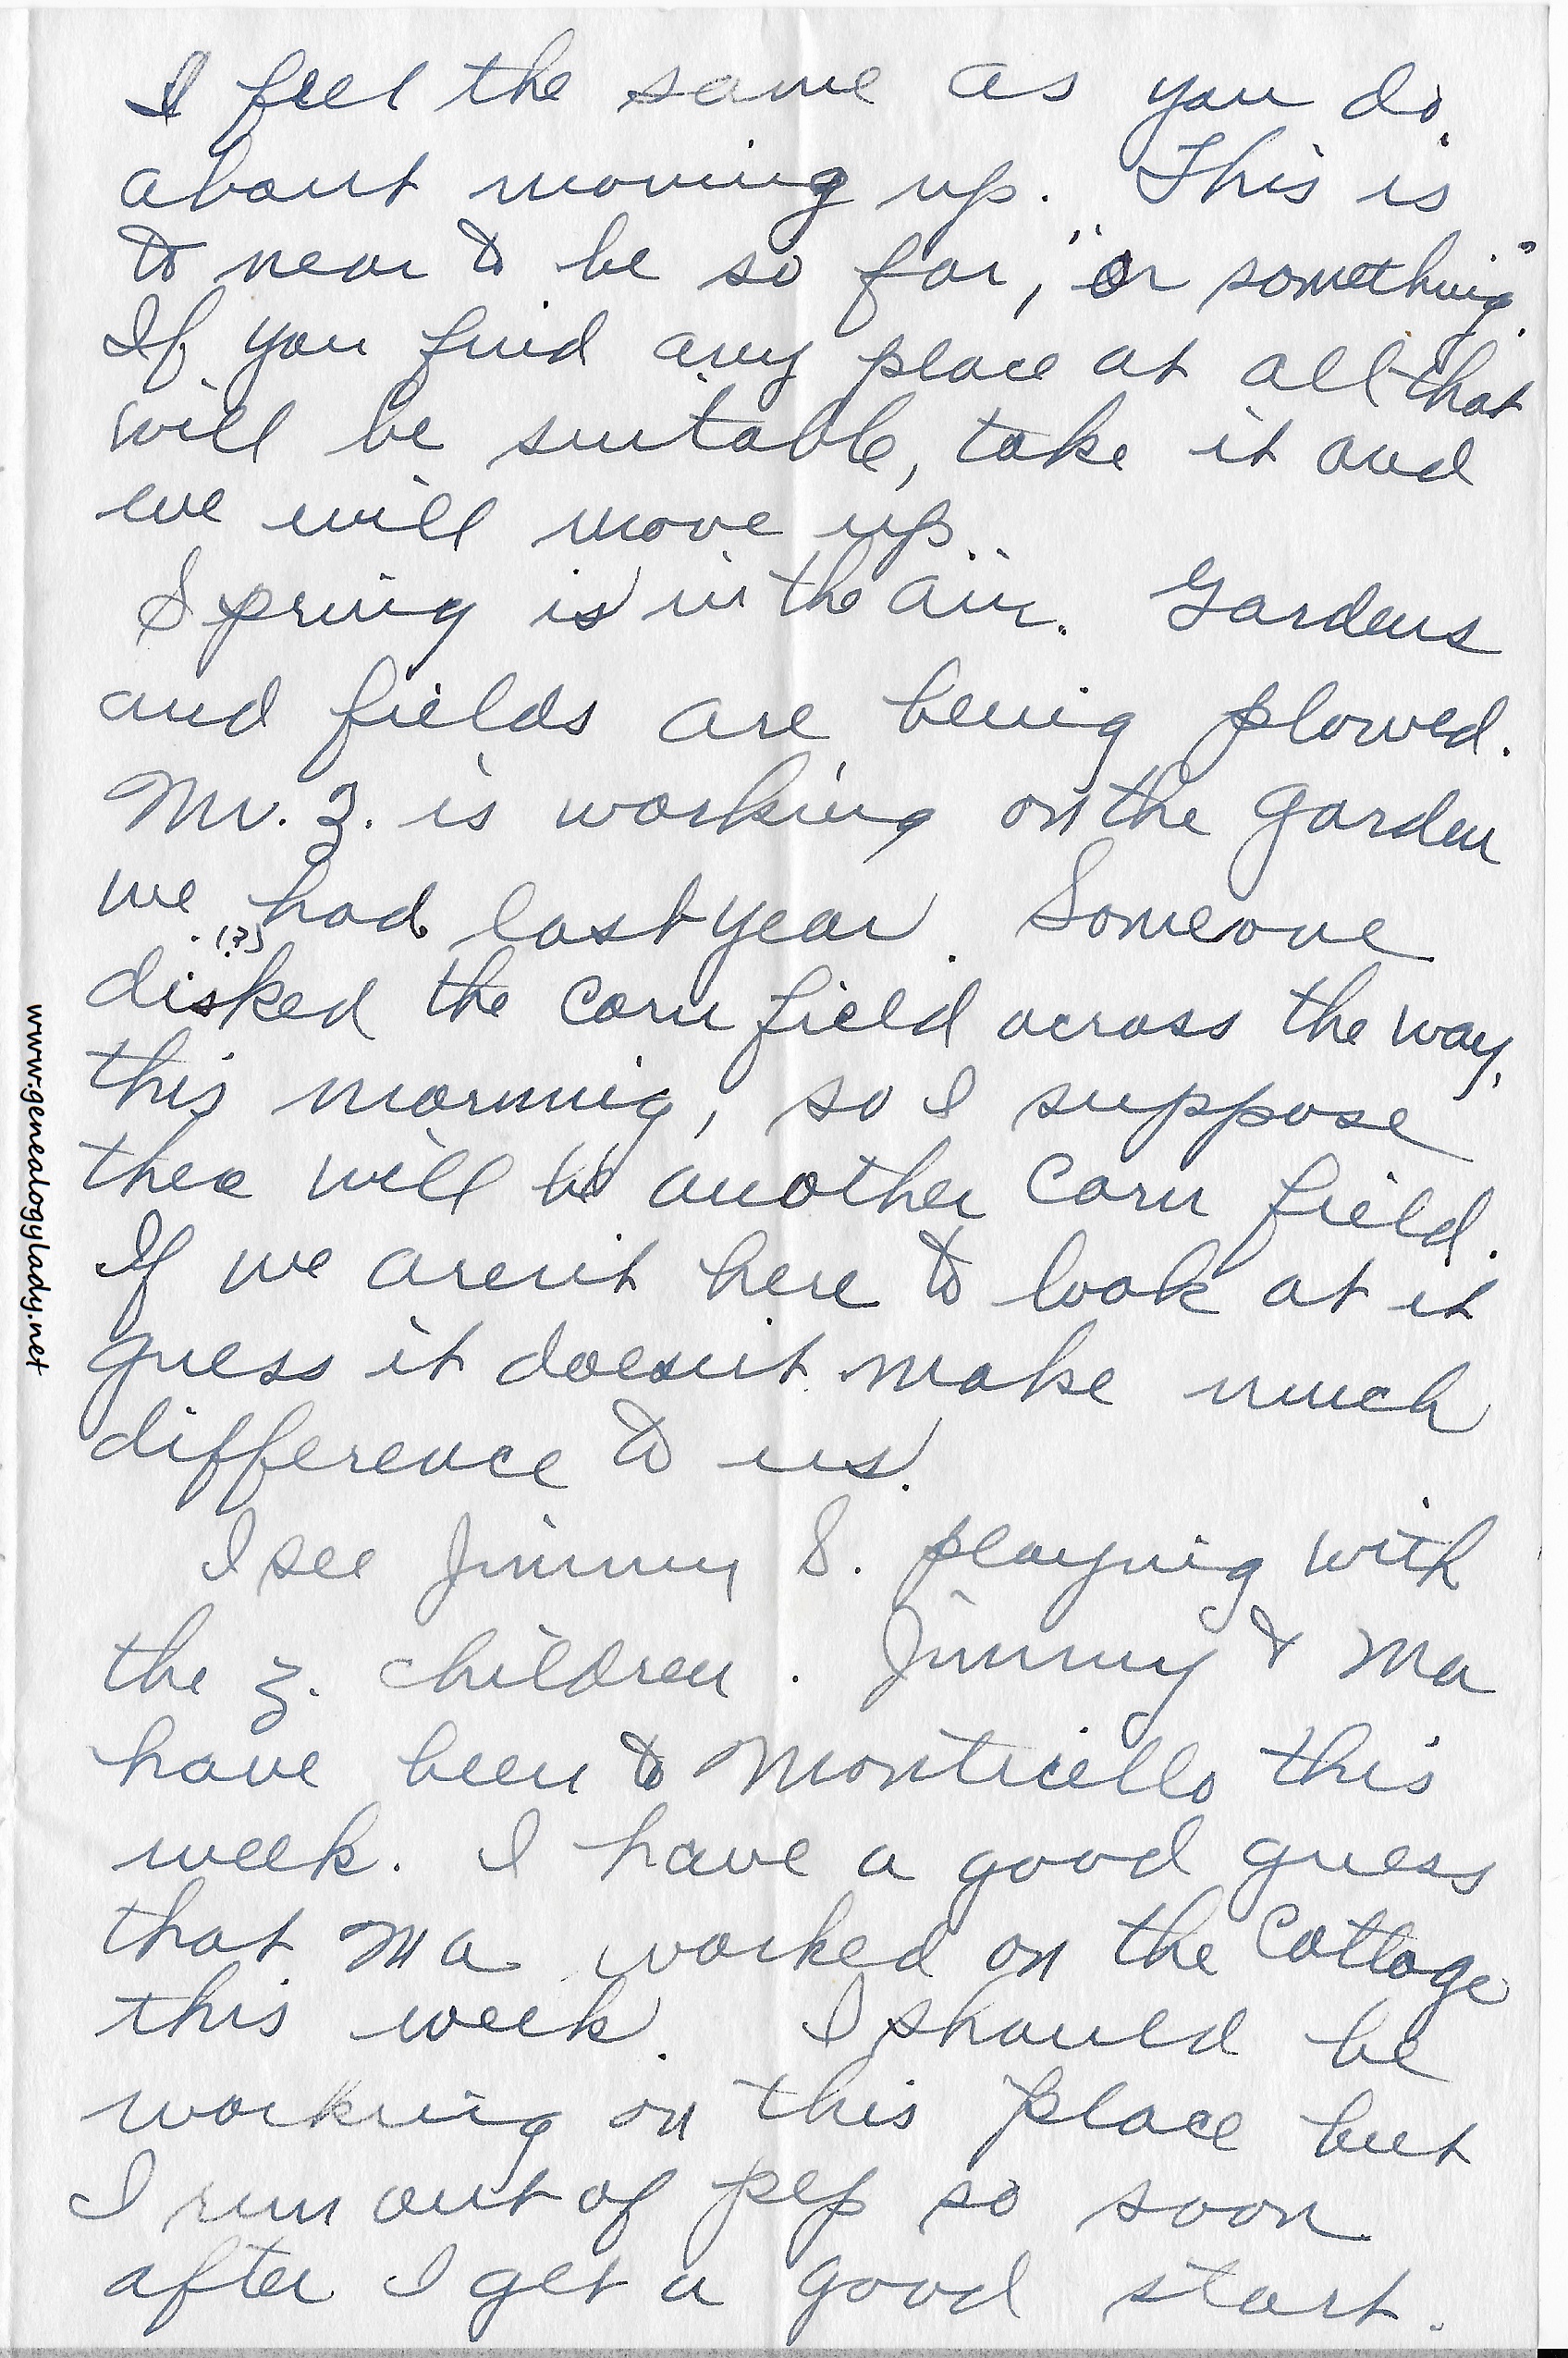 I feel the same as you do
about moving up. This is
to near to be so far, "or something".
If you find any place at all that
will be suitable, take it and
we will move up.
Spring is in the air. Gardens
and fields are being plowed.
Mr. Z. is working on the garden
we had last year. Someone
(?)
disked the corn field across the way,
this morning, so I suppose
thee will be another corn field.
If we aren't here to look at it
guess it doesn't make much
difference to us.
I see Jimmy S. playing with
the Z. children. Jimmy & Ma
have been to Monticello this
week. I have a good guess
that Ma worked on the Cottage
this week. I should be
working on this place but
I run out of pep so soon
after I get a good start.
www.genealogylady.net